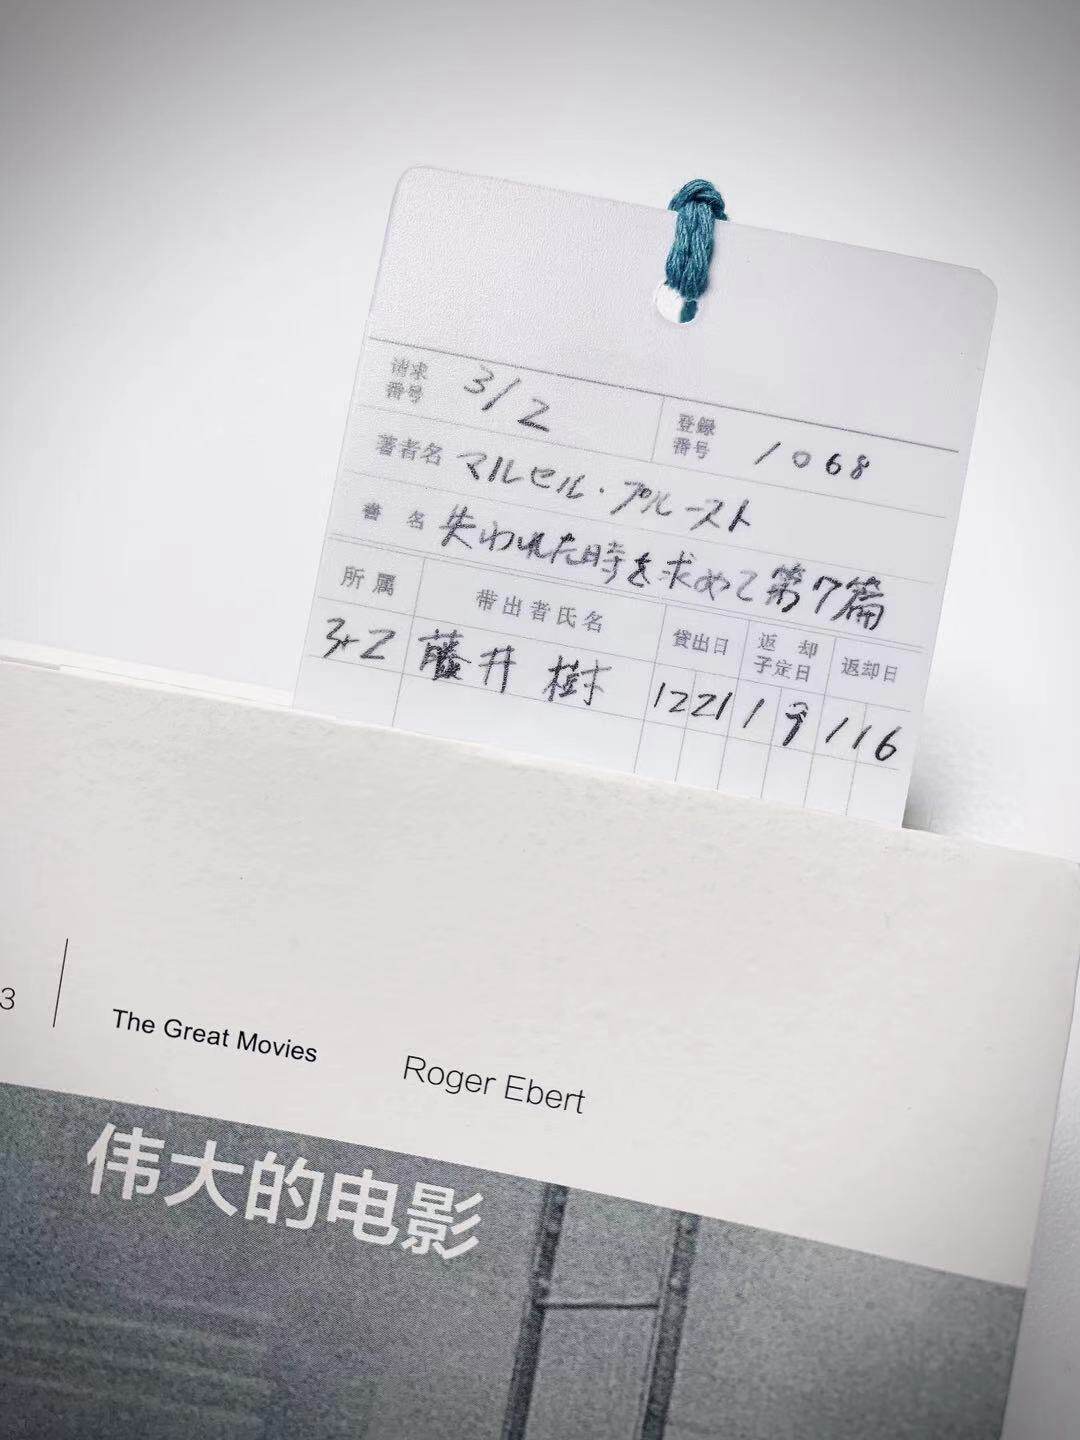 請求番号 312 登録番号 1068
著者名 マルセル・プルースト
書名 失われた時を求めて第7篇
所属 帯出者氏名 貸出日 返却予定日 返却日
3-2 藤井 樹 12 21 1 9 1 16
3 The Great Movies Roger Ebert
伟大的电影